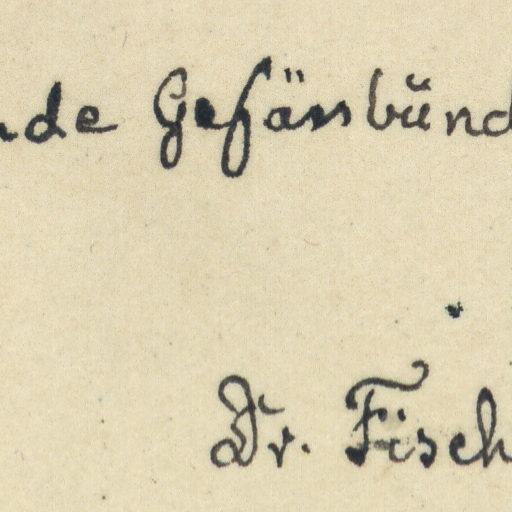 nde Gefässbünd
Dr. Fisch